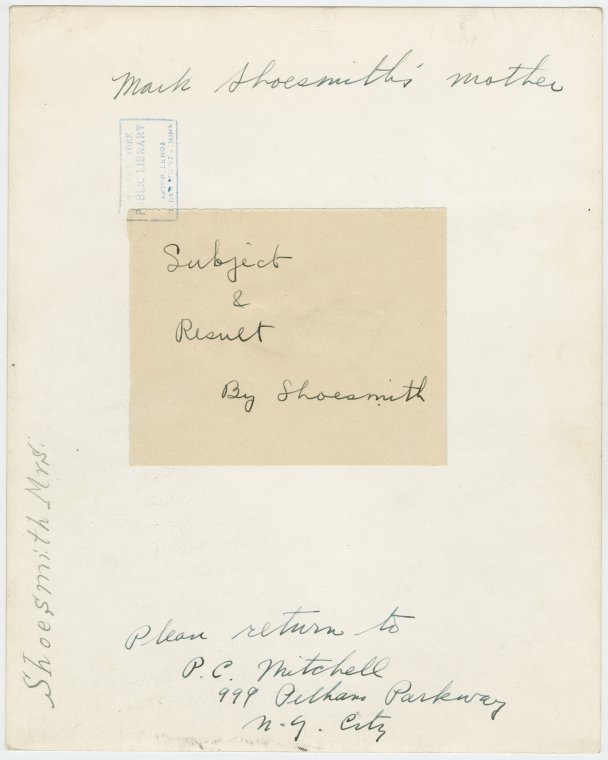 Mark Shoesmith's mother
PUBLIC LIBRARY
ASTOR LENOX
Subject
&
Result
By Shoesmith
Shoesmith Mrs.
Please return to
P.C. Mitchell
999 Pelham Parkway
N.Y. City